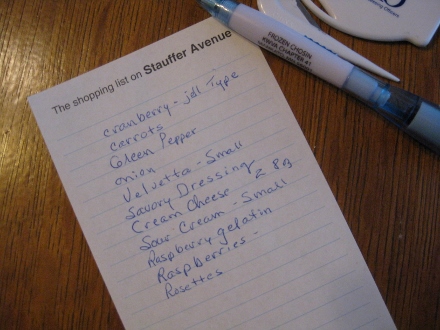 The shopping list on Stauffer Avenue
cranberry - jel. Type
carrots
Green Pepper
onion
Velveeta - Small
Savory Dressing
Cream Cheese 2 8oz
Sour Cream - Small
Raspberry gelatin
Raspberries -
Rosettes
FROZEN CHOSIN
KWVA CHAPTER #1